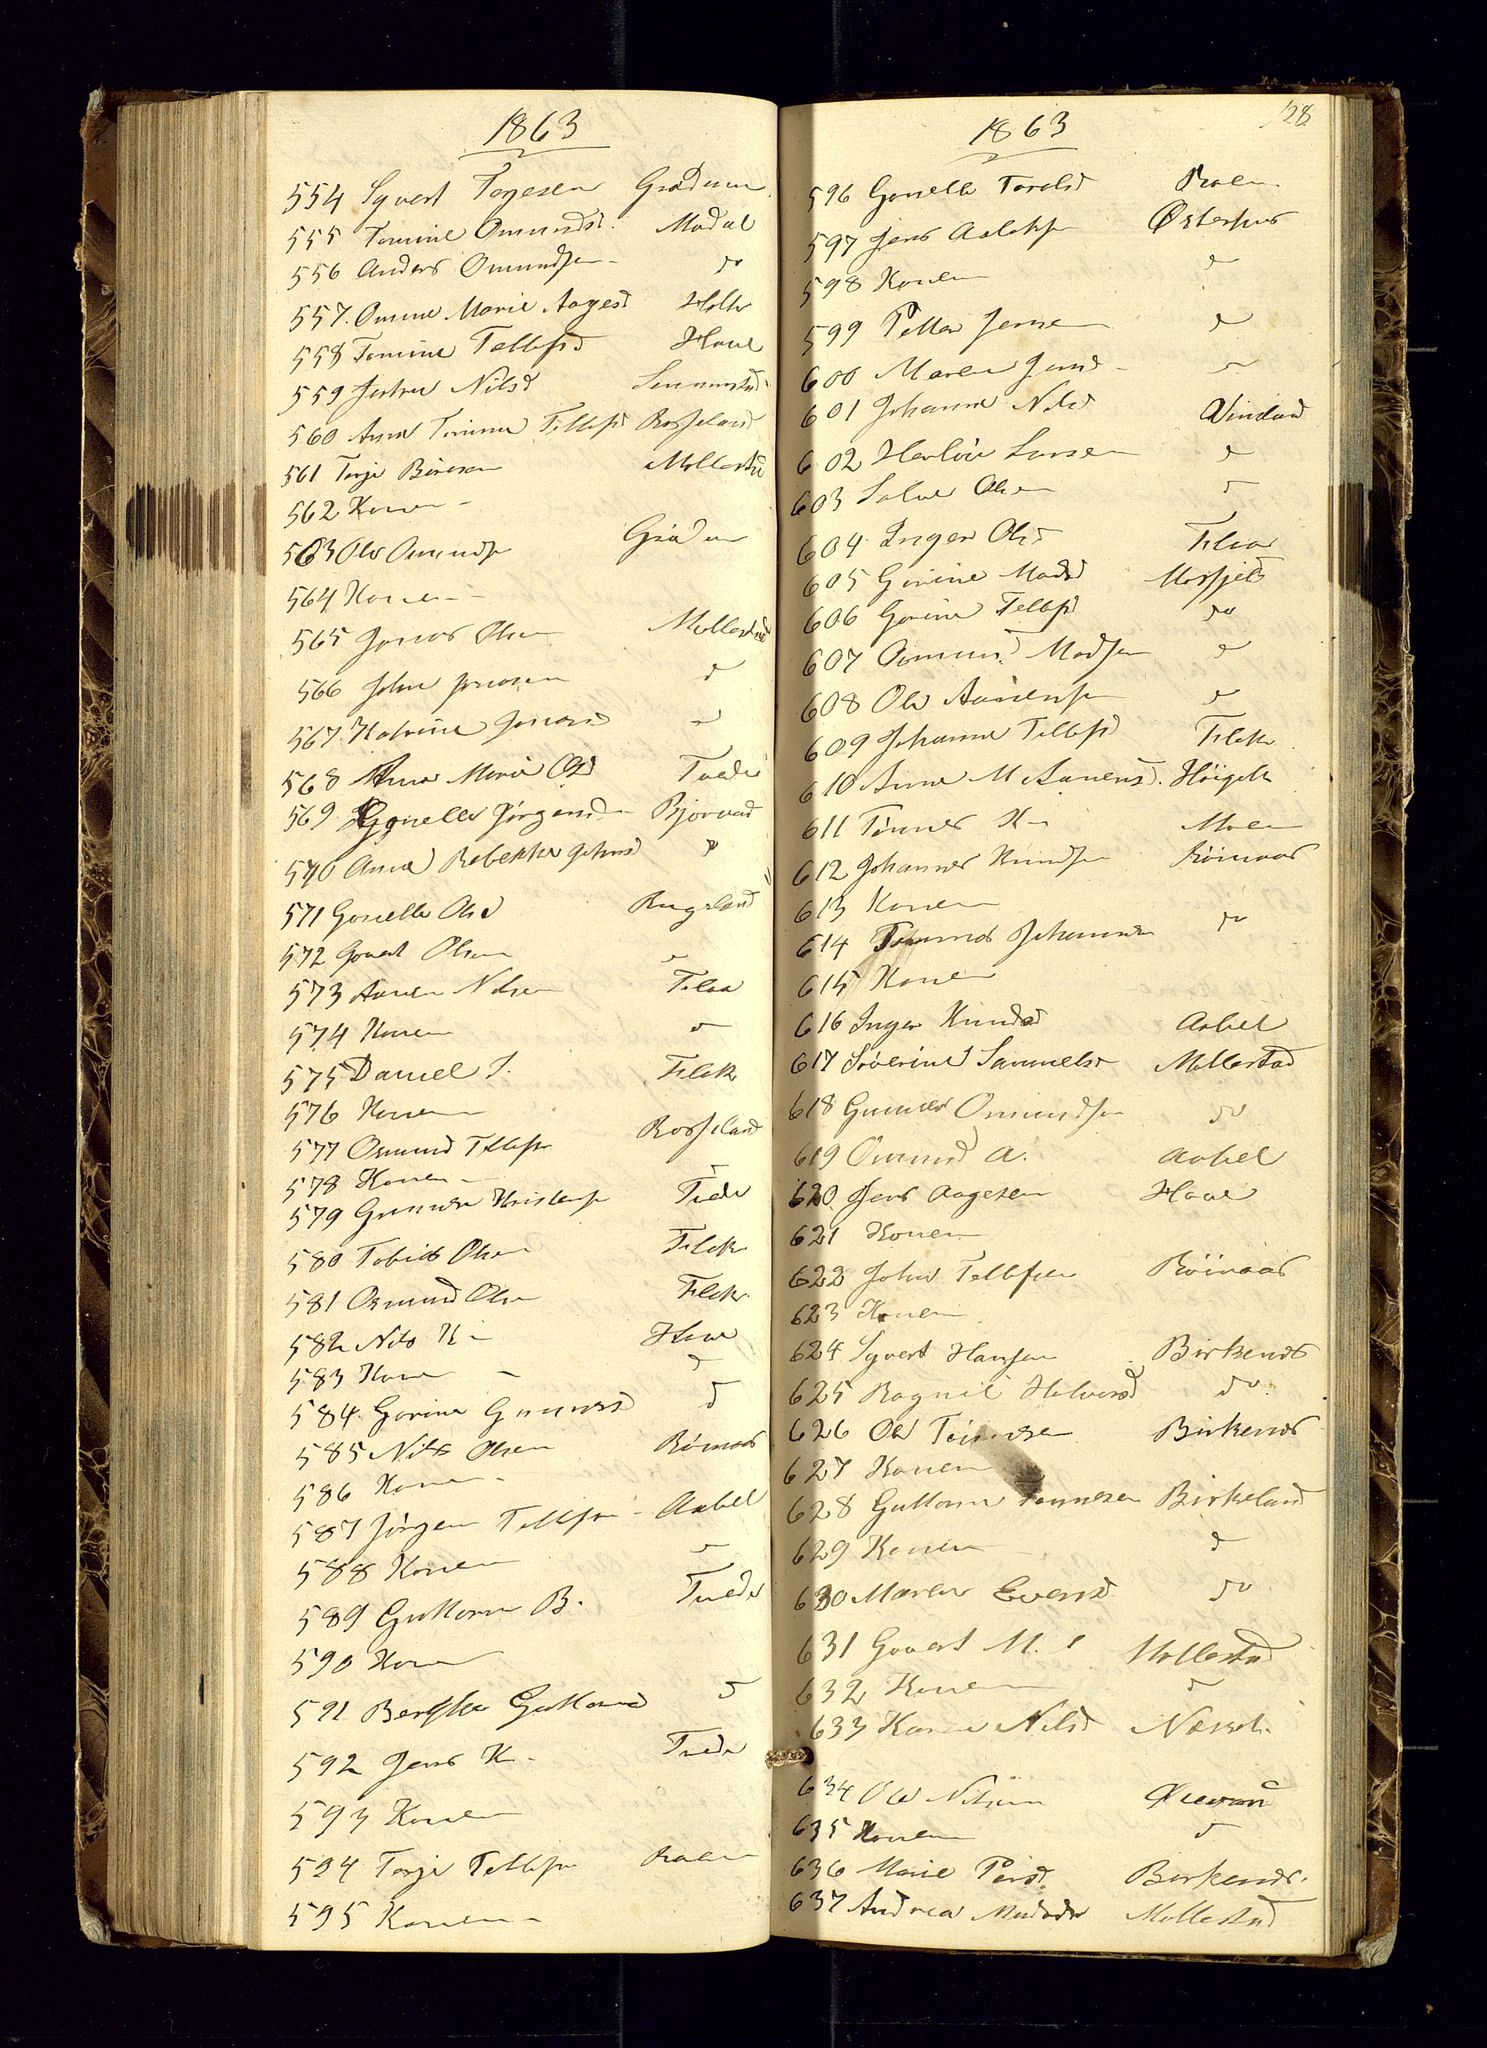 1863
554 Syvert Torjesen Grødum
555 Tomine Omundsd. Modal
556 Anders Omundsen - do
557. Omine Marie Aagesd Holte
558 Tomine Tellefsd Haue
559 Nilsd
560 Anne Tomine Tellefsd Rosseland
561 Terje Børesen Mollestad
562 Konen -
563 Ole Omundsen Grødum
564 Konen -
565 Jonas Olsen Mollestad
566 John Jonasen d
567 Katrine Jonasd d
568 Anne Marie Olsd Tvede
569 Gonelle Jørgensd Bjorvad
570 Anne Rebekke Johnsd "
571 Gonelle Olsd Rugsland
572 Govert Olsen d
573 Aanen Nilsen Fidaa
574 Konen d
575 Daniel S. Flek
576 Konen
577 Osmund Tellefsen Rosseland
578 Konen -
579 Gunder Kristensen Tvede
580 Tobias Olsen Flek
581 Osmund Olsen Flek
582 Nils K - Haue
583 Konen - d
584. Gorine Gunnersd d
585 Nils Olsen Røinaas
586 Konen -
587 Jørgen Tellefsen - Aabel
588 Konen d
589 Guttorm B. Tvede
590 Konen
591 Berthe Guttormsd d
592 Jens K - Tvede
593 Konen
594 Terje Tellefsen Roen
595 Konen -
1863 128
596 Gonelle Toralsd Roen
597 Jens Aslaksen Østerhus
598 Konen d
599 Petter Jensen d
600 Maren Jensd - d
601 Johanne Nilsd Vindaas
602 Herløv Larsen d
603 Salve Olsen d
604 Inger Olsd
605 Gorine Madsd Mosfjeld
606 Gorine Tellefsd do
607 Omund Madsen d
608 Ole Aanensen d
609 Johanne Tellefsd Flek
610 Anne M Aanensd. Høigilt
611 Tønnes K - Moen
612 Johannes Knudsen Røinaas
613 Konen
614 Tønnes Johannesen do
615 Konen
616 Inger Knudsd Aabel
617 Severine Samuelsd Mollestad
618 Gunder Omundsen do
619 Omund A. Aabel
620 Jens Aagesen Haue
621 Konen
622 John Tellefsen Røinaas
623 Konen
624 Syvert Hansen Birkenes
625 Ragnil Halvorsd do
626 Ole Tønnesen Birkenes
627 Konen
628 Guttorm Tønnesen Birkeland
629 Konen d
630 Maren Evensd do
631 Govert M. Mollestad
632 Konen d
633 Karen Nilsd
634 Ole Nilsen
635 Konen d
636 Marie Persd. Birkenes.
637 Andrea Mollestad